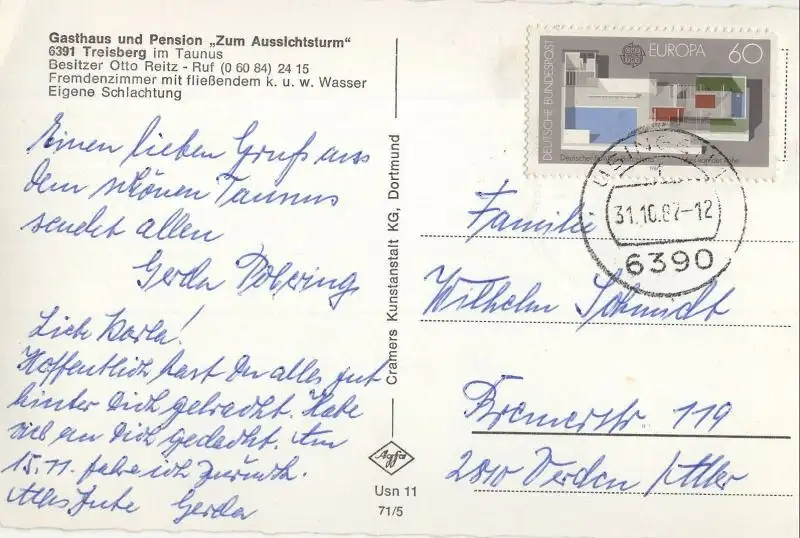 Gasthaus und Pension „Zum Aussichtsturm"
6391 Treisberg im Taunus
Besitzer Otto Reitz - Ruf (0 60 84) 24 15
Fremdenzimmer mit fließendem k. u. w. Wasser
Eigene Schlachtung
Einen lieben Gruß aus
dem schönen Taunus
sendet allen
Gerda
Liebe Karla!
Hoffentlich hast Du alles gut
hinter Dich gebracht. Habe
viel an Dich gedacht. Am
15.11. fahre ich zurück.
Alles Gute Gerda
Cramers Kunstanstalt KG, Dortmund
Agfa
Usn 11
71/5
DEUTSCHE BUNDESPOST
EUROPA 60
31.10.87-12
6390
Familie
Wilhelm Schmidt
Bremerstr. 119
2810 Verden/Aller